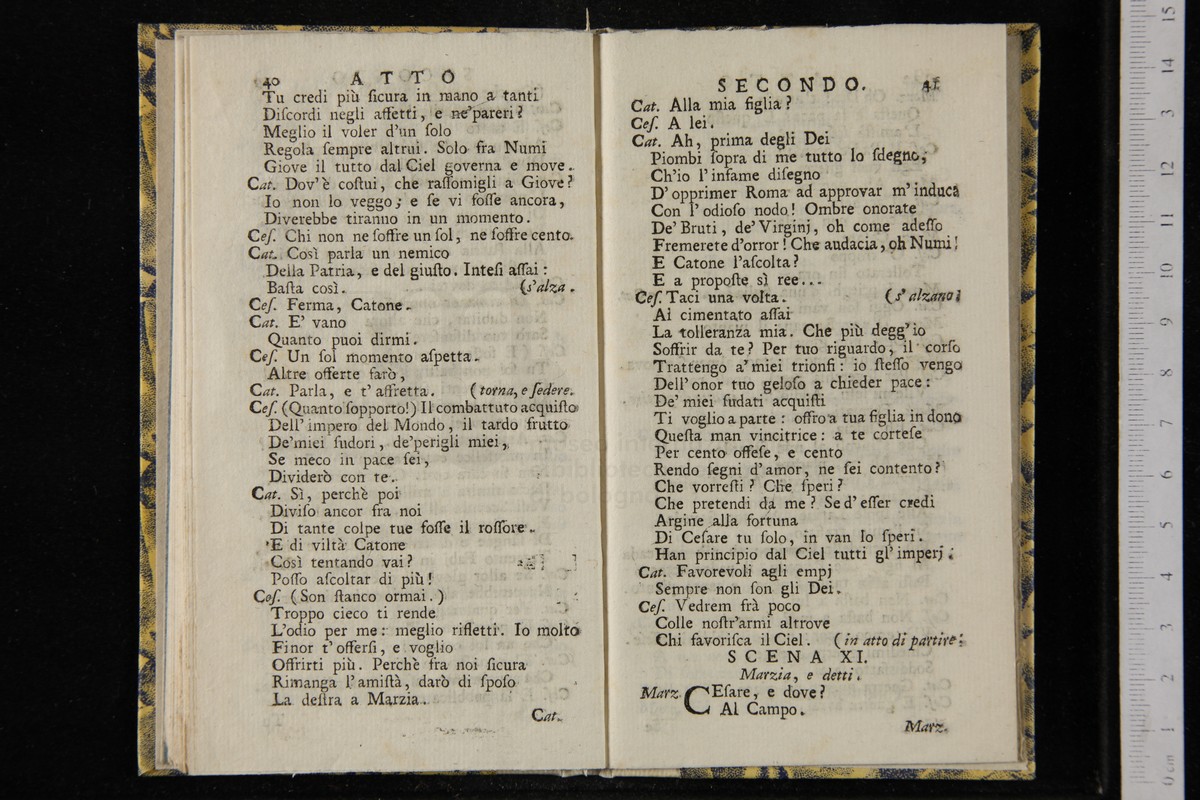 40 ATTO
Tu credi più ſicura in mano a tanti
Diſcordi negli affetti, e ne'pareri?
Meglio il voler d'un ſolo
Regola ſempre altrui. Solo fra Numi
Giove il tutto dal Ciel governa e move.
Cat. Dov'è coſtui, che raſſomigli a Giove?
Io non lo veggo; e ſe vi foſſe ancora,
Diverebbe tiranno in un momento.
Ceſ. Chi non ne ſoffre un ſol, ne ſoffre cento.
Cat. Così parla un nemico
Della Patria, e del giuſto. Inteſi aſſai:
Baſta così. (s'alza.
Ceſ. Ferma, Catone.
Cat. E' vano
Quanto puoi dirmi.
Ceſ. Un ſol momento aſpetta.
Altre offerte farò,
Cat. Parla, e t'affretta. (torna, e ſedere.
Ceſ. (Quanto ſopporto!) Il combattuto acquiſto
Dell'impero del Mondo, il tardo frutto
De'miei ſudori, de'perigli miei,
Se meco in pace ſei,
Dividerò con te.
Cat. Sì, perchè poi
Diviſo ancor fra noi
Di tante colpe tue foſſe il roſſore.
'E di viltà Catone
Così tentando vai?
Poſſo aſcoltar di più!
Ceſ. (Son ſtanco ormai.)
Troppo cieco ti rende
L'odio per me: meglio rifletti. Io molto
Finor t'offerſi, e voglio
Offrirti più. Perchè fra noi ſicura
Rimanga l'amiſtà, darò di ſpoſo
La deſtra a Marzia.
Cat.
SECONDO. 41
Cat. Alla mia figlia?
Ceſ. A lei.
Cat. Ah, prima degli Dei
Piombi ſopra di me tutto lo ſdegno,
Ch'io l'infame diſegno
D'opprimer Roma ad approvar m'induca
Con l'odioſo nodo! Ombre onorate
De'Bruti, de'Virginj, oh come adeſſo
Fremerete d'orror! Che audacia, oh Numi!
E Catone l'aſcolta?
E a propoſte sì ree...
Ceſ. Taci una volta. (s'alzano
Ai cimentato aſſai
La tolleranza mia. Che più degg'io
Soffrir da te? Per tuo riguardo, il corſo
Trattengo a'miei trionfi: io ſteſſo vengo
Dell'onor tuo geloſo a chieder pace:
De'miei ſudati acquiſti
Ti voglio a parte: offro a tua figlia in dono
Queſta man vincitrice: a te corteſe
Per cento offeſe, e cento
Rendo ſegni d'amor, ne ſei contento?
Che vorreſti? Che ſperi?
Che pretendi da me? Se d'eſſer credi
Argine alla fortuna
Di Ceſare tu ſolo, in van lo ſperi.
Han principio dal Ciel tutti gl'imperj.
Cat. Favorevoli agli empj
Sempre non ſon gli Dei.
Ceſ. Vedrem frà poco
Colle noſtr'armi altrove
Chi favoriſca il Ciel. (in atto di partire.
SCENA XI.
Marzia, e detti.
Marz. CEſare, e dove?
Al Campo.
Marz.